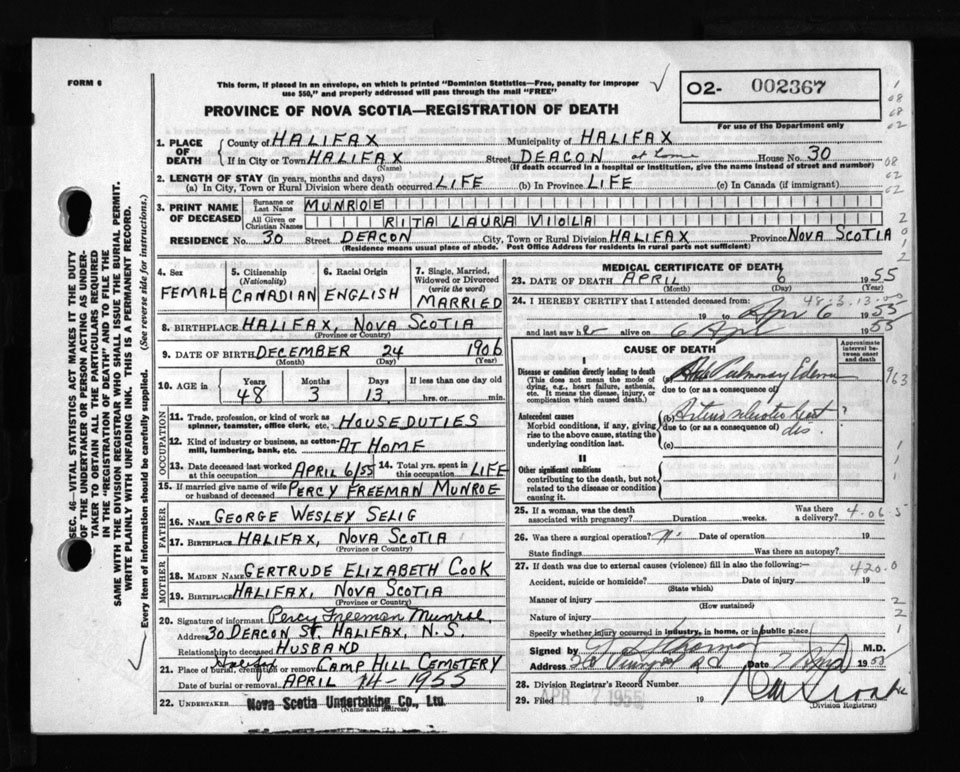 FORM 6
This form, if placed in an envelope, on which is printed "Dominion Statistics—Free, penalty for improper
use $50," and properly addressed will pass through the mail "FREE"
PROVINCE OF NOVA SCOTIA—REGISTRATION OF DEATH
02- 002367
For use of the Department only
1. PLACE OF DEATH
County of HALIFAX Municipality of HALIFAX
If in City or Town HALIFAX (Name) Street DEACON at home House No. 30
(If death occurred in a hospital or institution, give the name instead of street and number)
2. LENGTH OF STAY (in years, months and days)
(a) In City, Town or Rural Division where death occurred LIFE (b) In Province LIFE (c) In Canada (if immigrant)
3. PRINT NAME OF DECEASED
Surname or Last Name MUNROE
All Given or Christian Names RITA LAURA VIOLA
RESIDENCE No. 30 Street DEACON City, Town or Rural Division HALIFAX Province NOVA SCOTIA
(Residence means usual place of abode. Post Office Address for residents in rural parts not sufficient)
4. Sex FEMALE
5. Citizenship (Nationality) CANADIAN
6. Racial Origin ENGLISH
7. Single, Married, Widowed or Divorced (write the word) MARRIED
8. BIRTHPLACE HALIFAX, NOVA SCOTIA
(Province or Country)
9. DATE OF BIRTH DECEMBER 24 1906
(Month) (Day) (Year)
10. AGE in Years 48 Months 3 Days 13 If less than one day old hrs. or min.
OCCUPATION
11. Trade, profession, or kind of work as spinner, teamster, office clerk, etc. HOUSE DUTIES
12. Kind of industry or business, as cotton-mill, lumbering, bank, etc. AT HOME
13. Date deceased last worked at this occupation APRIL 6/55 14. Total yrs. spent in this occupation LIFE
15. If married give name of wife or husband of deceased PERCY FREEMAN MUNROE
FATHER
16. NAME GEORGE WESLEY SELIG
17. BIRTHPLACE HALIFAX, NOVA SCOTIA
(Province or Country)
MOTHER
18. MAIDEN NAME GERTRUDE ELIZABETH COOK
19. BIRTHPLACE HALIFAX, NOVA SCOTIA
(Province or Country)
20. Signature of informant Percy Freeman Munroe.
Address 30 DEACON ST. HALIFAX, N.S.
Relationship to deceased HUSBAND
21. Place of burial, cremation or removal Halifax CAMP HILL CEMETERY
Date of burial or removal APRIL 14-1955
22. UNDERTAKER Nova Scotia Undertaking Co., Ltd.
(Name and address)
MEDICAL CERTIFICATE OF DEATH
23. DATE OF DEATH APRIL 6 1955
(Month) (Day) (Year)
24. I HEREBY CERTIFY that I attended deceased from: 48-3-13-00
19 to Apr 6 1955
and last saw her alive on 6 Apr 1955
CAUSE OF DEATH
Approximate interval between onset and death
I
Disease or condition directly leading to death
(This does not mean the mode of dying, e.g., heart failure, asthenia, etc. It means the disease, injury, or complication which caused death.)
(a) Pulmonary Edema
due to (or as a consequence of)
963
Antecedent causes
Morbid conditions, if any, giving rise to the above cause, stating the underlying condition last.
(b) Arteriosclerotic heart dis. ?
due to (or as a consequence of)
(c)
II
Other significant conditions
contributing to the death, but not related to the disease or condition causing it.
25. If a woman, was the death associated with pregnancy? Duration weeks. Was there a delivery? 4-06-5
26. Was there a surgical operation? Date of operation 19
State findings Was there an autopsy?
27. If death was due to external causes (violence) fill in also the following:— 420.0
Accident, suicide or homicide? Date of injury 19
(State which)
Manner of injury
(How sustained)
Nature of injury
Specify whether injury occurred in industry, in home, or in public place
Signed by M.D.
Address Date 7 1955
28. Division Registrar's Record Number
29. Filed APR 7 1955 19
Division Registrar
SEC. 46—VITAL STATISTICS ACT MAKES IT THE DUTY
OF THE UNDERTAKER OR PERSON ACTING AS UNDER-
TAKER TO OBTAIN ALL THE PARTICULARS REQUIRED
IN THE "REGISTRATION OF DEATH" AND TO FILE THE
SAME WITH THE DIVISION REGISTRAR WHO SHALL ISSUE THE BURIAL PERMIT.
WRITE PLAINLY WITH UNFADING INK. THIS IS A PERMANENT RECORD.
Every item of information should be carefully supplied. (See reverse side for instructions.)